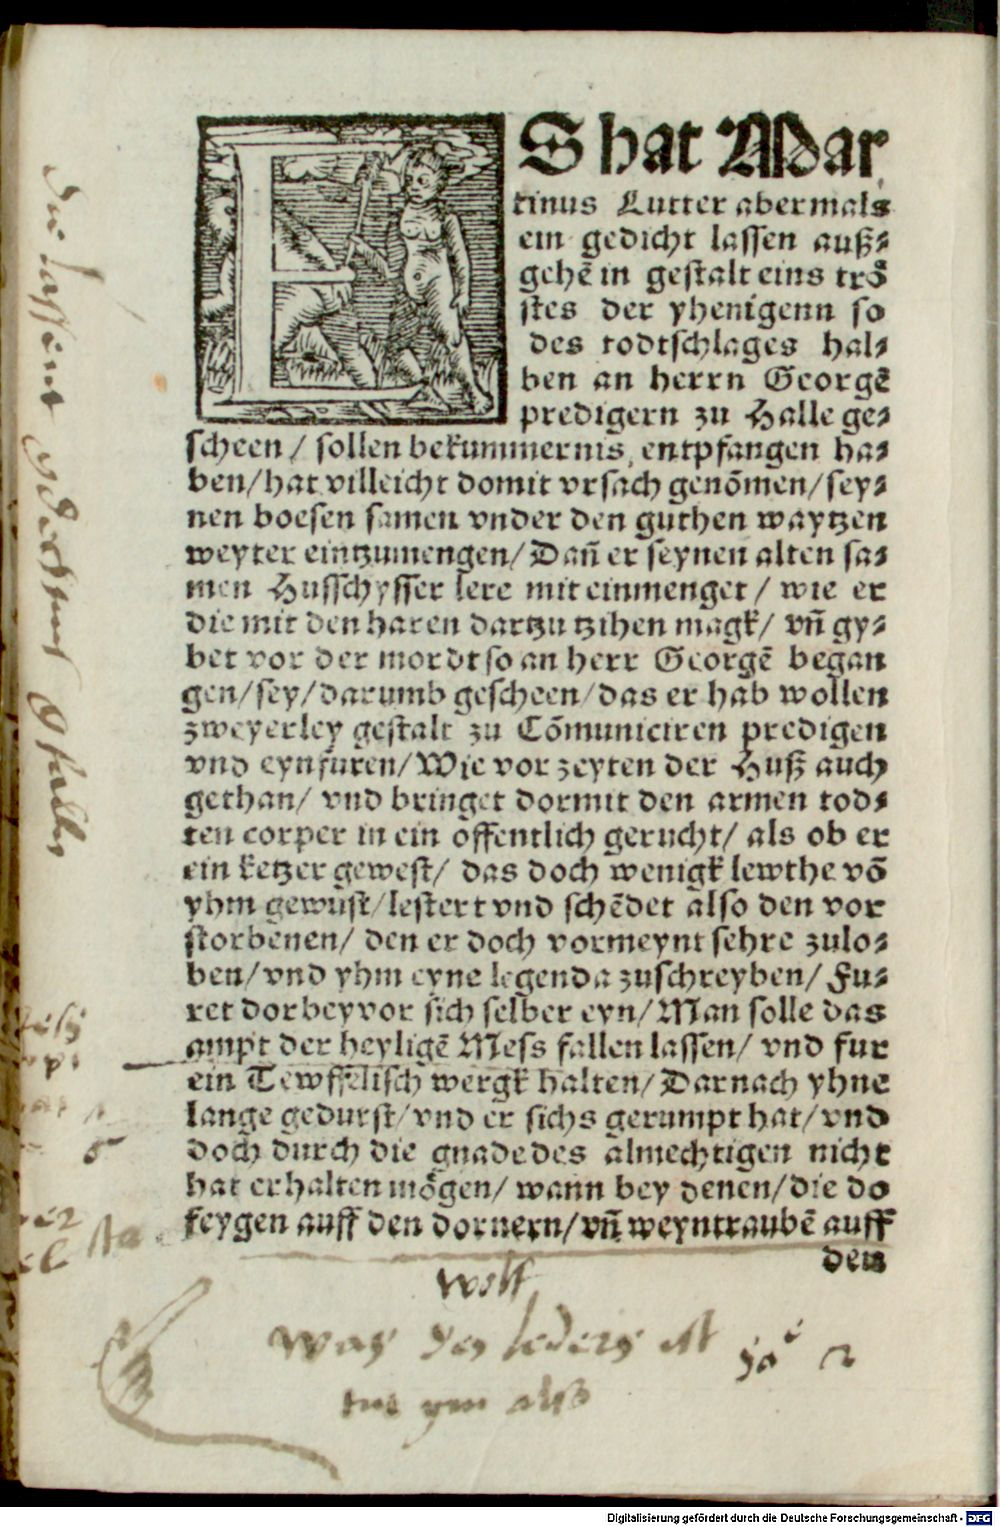 ES hat Mar
tinus Lutter abermals
ein gedicht lassen auß⸗
gehē in gestalt eins trö
stes der yhenigenn so
des todtschlages hal⸗
ben an herrn Georgē
predigern zu Halle ge⸗
scheen / sollen bekummernis entpfangen ha⸗
ben / hat villeicht domit vrsach genōmen / sey⸗
nen boesen samen vnder den guthen waytzen
weyter eintzumengen / Dañ er seynen alten sa⸗
men Husschysser lere mit einmenget / wie er
die mit den haren dartzu tzihen magk / vñ gy⸗
bet vor der mordt so an herr Georgē began
gen / sey / darumb gescheen / das er hab wollen
zweyerley gestalt zu Cōmuniciren predigen
vnd eynfüren / Wie vor zeyten der Huß auch
gethan / vnd bringet dormit den armen tod⸗
ten corper in ein öffentlich gerucht / als ob er
ein ketzer gewest / das doch wenigk lewthe vō
yhm gewüst / lestert vnd schēdet also den vor
storbenen / den er doch vormeynt sehre zulo⸗
ben / vnd yhm eyne legenda zuschreyben / Fu⸗
ret dorbey vor sich selber eyn / Man solle das
ampt der heyligē Mess fallen lassen / vnd fur
ein Tewffelisch wergk halten / Darnach yhne
lange gedurst / vnd er sichs gerumpt hat / vnd
doch durch die gnade des almechtigen nicht
hat erhalten mögen / wann bey denen / die do
feygen auff den dornern / vñ weyntraubē auff
den
wolf
was des leders ist
Digitalisierung gefördert durch die Deutsche Forschungsgemeinschaft - DFG